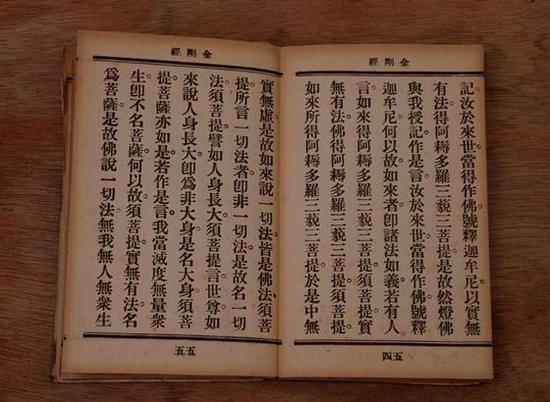 金剛經
記汝於來世。當得作佛。號釋迦牟尼。以實無
有法。得阿耨多羅三藐三菩提。是故然燈佛
與我授記。作是言。汝於來世。當得作佛。號釋
迦牟尼。何以故。如來者。卽諸法如義。若有人
言。如來得阿耨多羅三藐三菩提。須菩提。實
無有法。佛得阿耨多羅三藐三菩提。須菩提。
如來所得阿耨多羅三藐三菩提。於是中無
五四
金剛經
實無虛。是故如來說一切法。皆是佛法。須菩
提。所言一切法者。卽非一切法。是故名一切
法。須菩提。譬如人身長大。須菩提言。世尊。如
來說人身長大。卽爲非大身。是名大身。須菩
提。菩薩亦如是。若作是言。我當滅度無量衆
生。卽不名菩薩。何以故。須菩提。實無有法。名
爲菩薩。是故佛說一切法。無我無人無衆生
五五